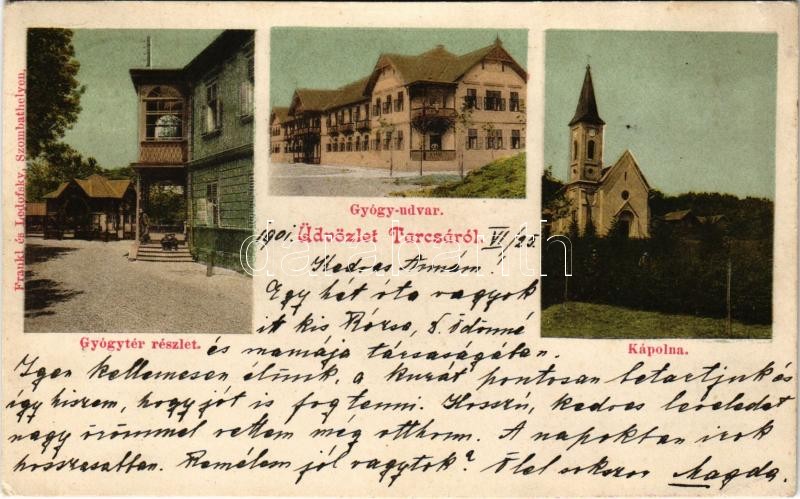 Frankl és Ledofsky, Szombathelyen.
Gyógy-udvar.
1901. Üdvözlet Tarcsáról. VI/25
Kedves Annám!
Egy hét óta vagyok
itt kis Rózsa, S. Ödönné
Gyógytér részlet. és mamája társaságában. Kápolna.
Igen kellemesen élünk, a kurát pontosan betartjuk és
így hiszem, hogy jót is fog tenni. Hosszú, kedves leveledet
nagy örömmel vettem meg otthonn. A napokban irok
hosszasabban. Remélem jól vagytok? Ölel sokszor Magda.
darabanth